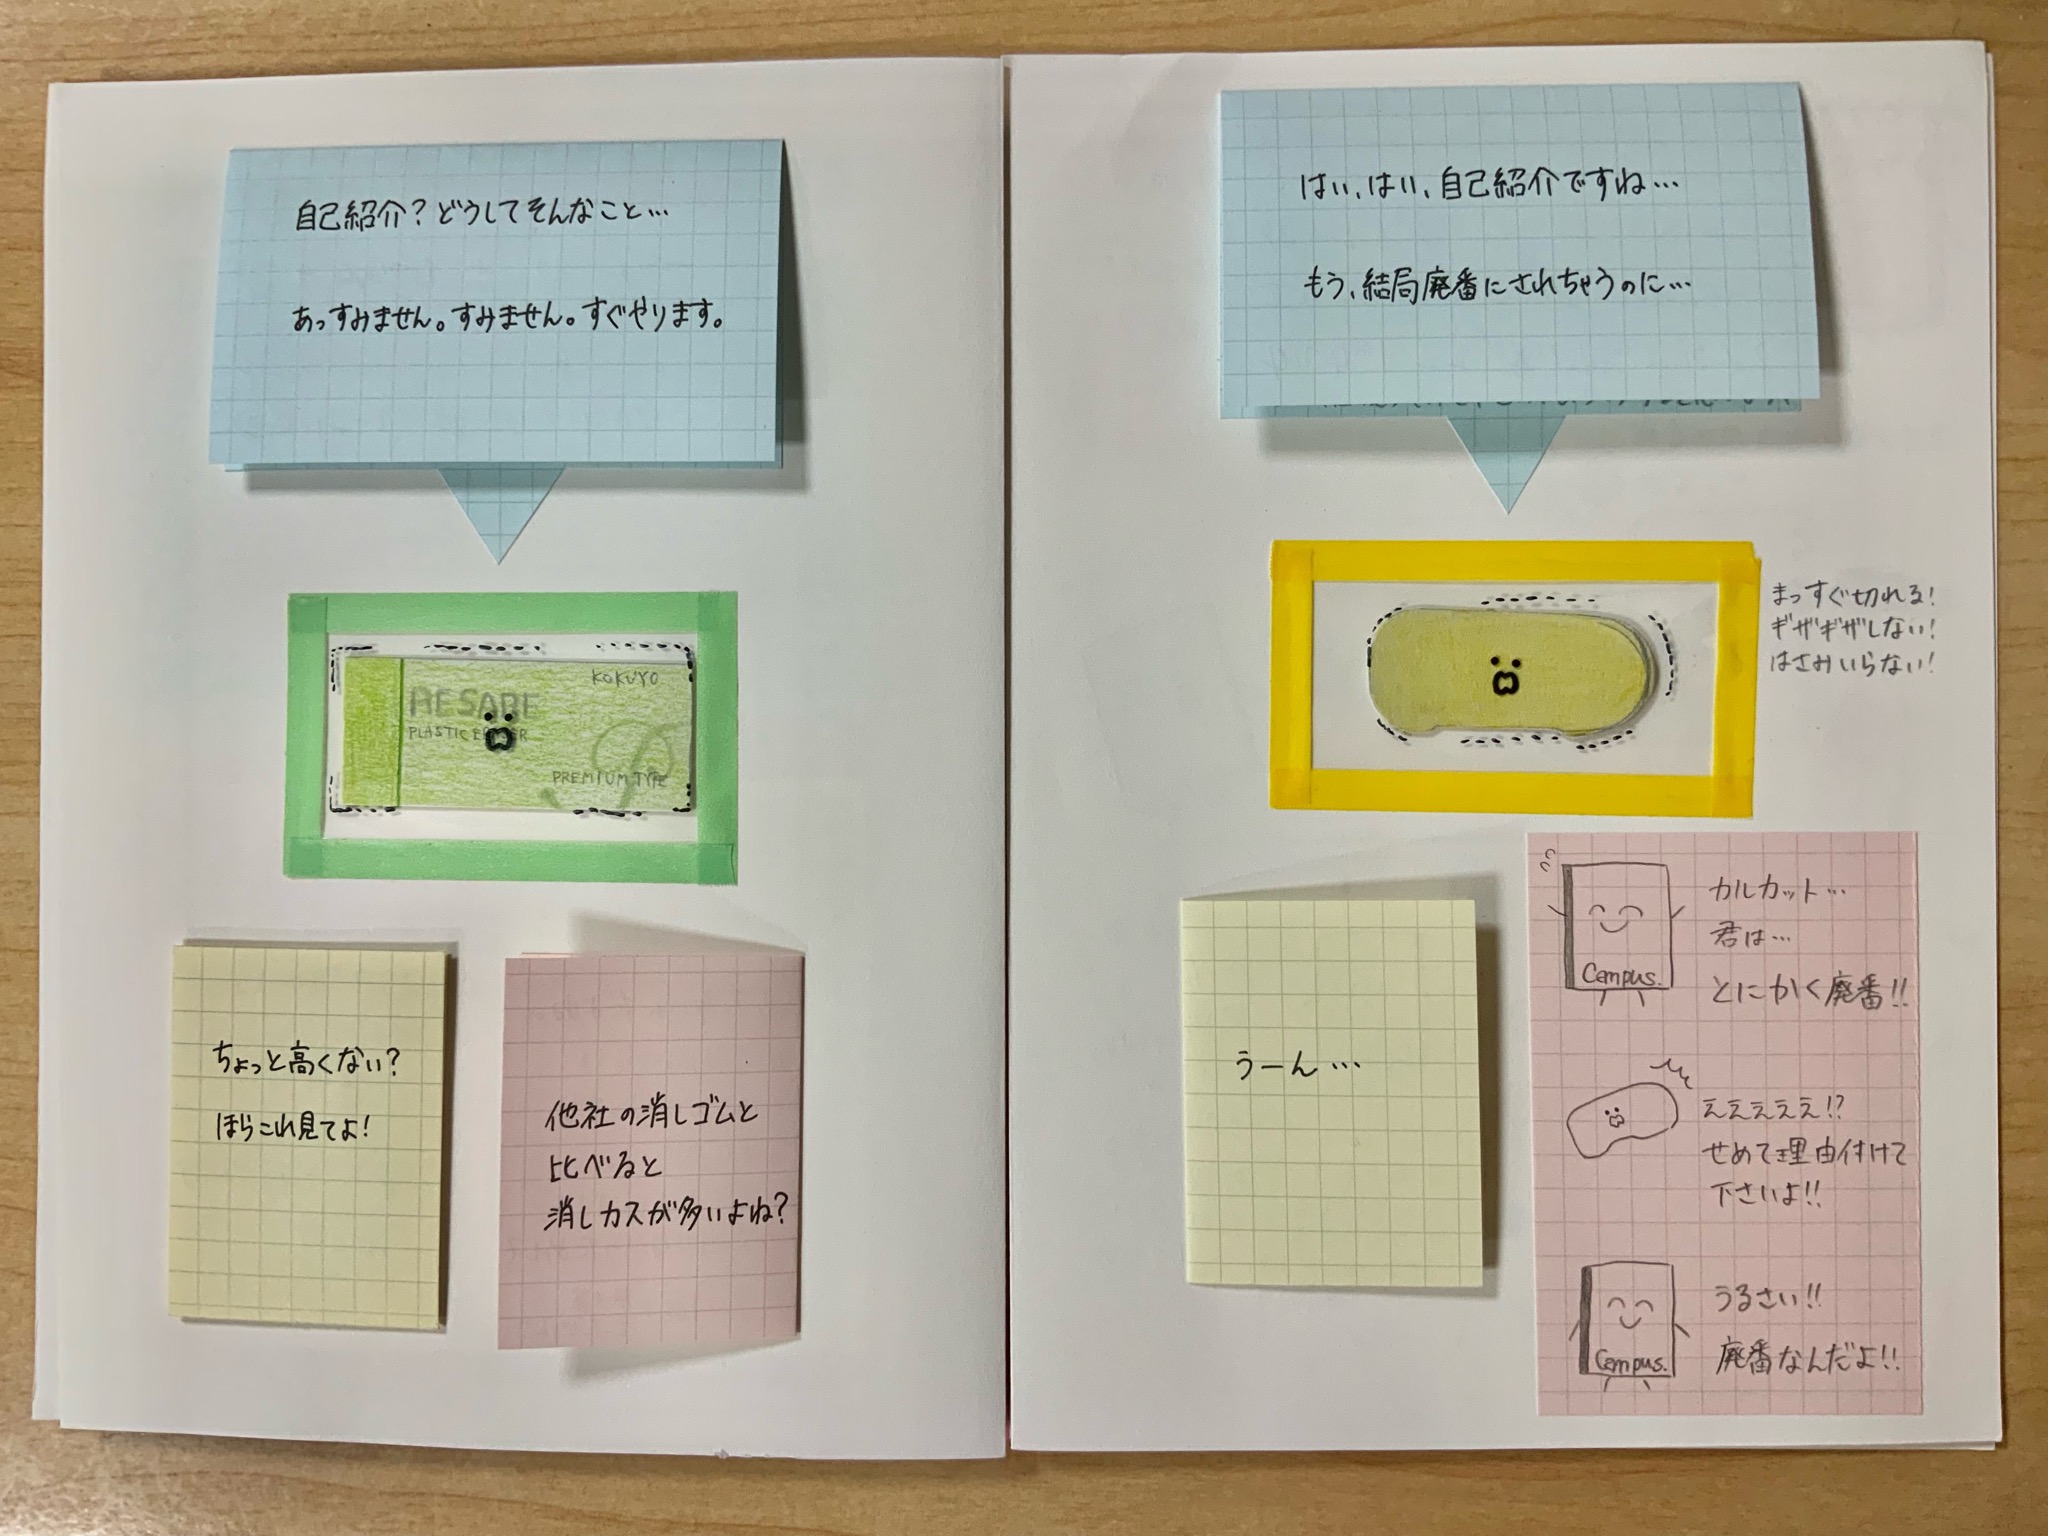 自己紹介？どうしてそんなこと…
あっすみません。すみません。すぐやります。
KOKUYO
RESARE
PLASTIC ER
PREMIUM TYPE
ちょっと高くない？
ほらこれ見てよ！
他社の消しゴムと
比べると
消しカスが多いよね？
はい、はい、自己紹介ですね…
もう、結局廃番にされちゃうのに…
まっすぐ切れる！
ギザギザしない！
はさみいらない！
うーん…
カルカット…
君は…
とにかく廃番!!
Campus.
えええええ!?
せめて理由付けて
下さいよ!!
うるさい!!
廃番なんだよ!!
Campus.